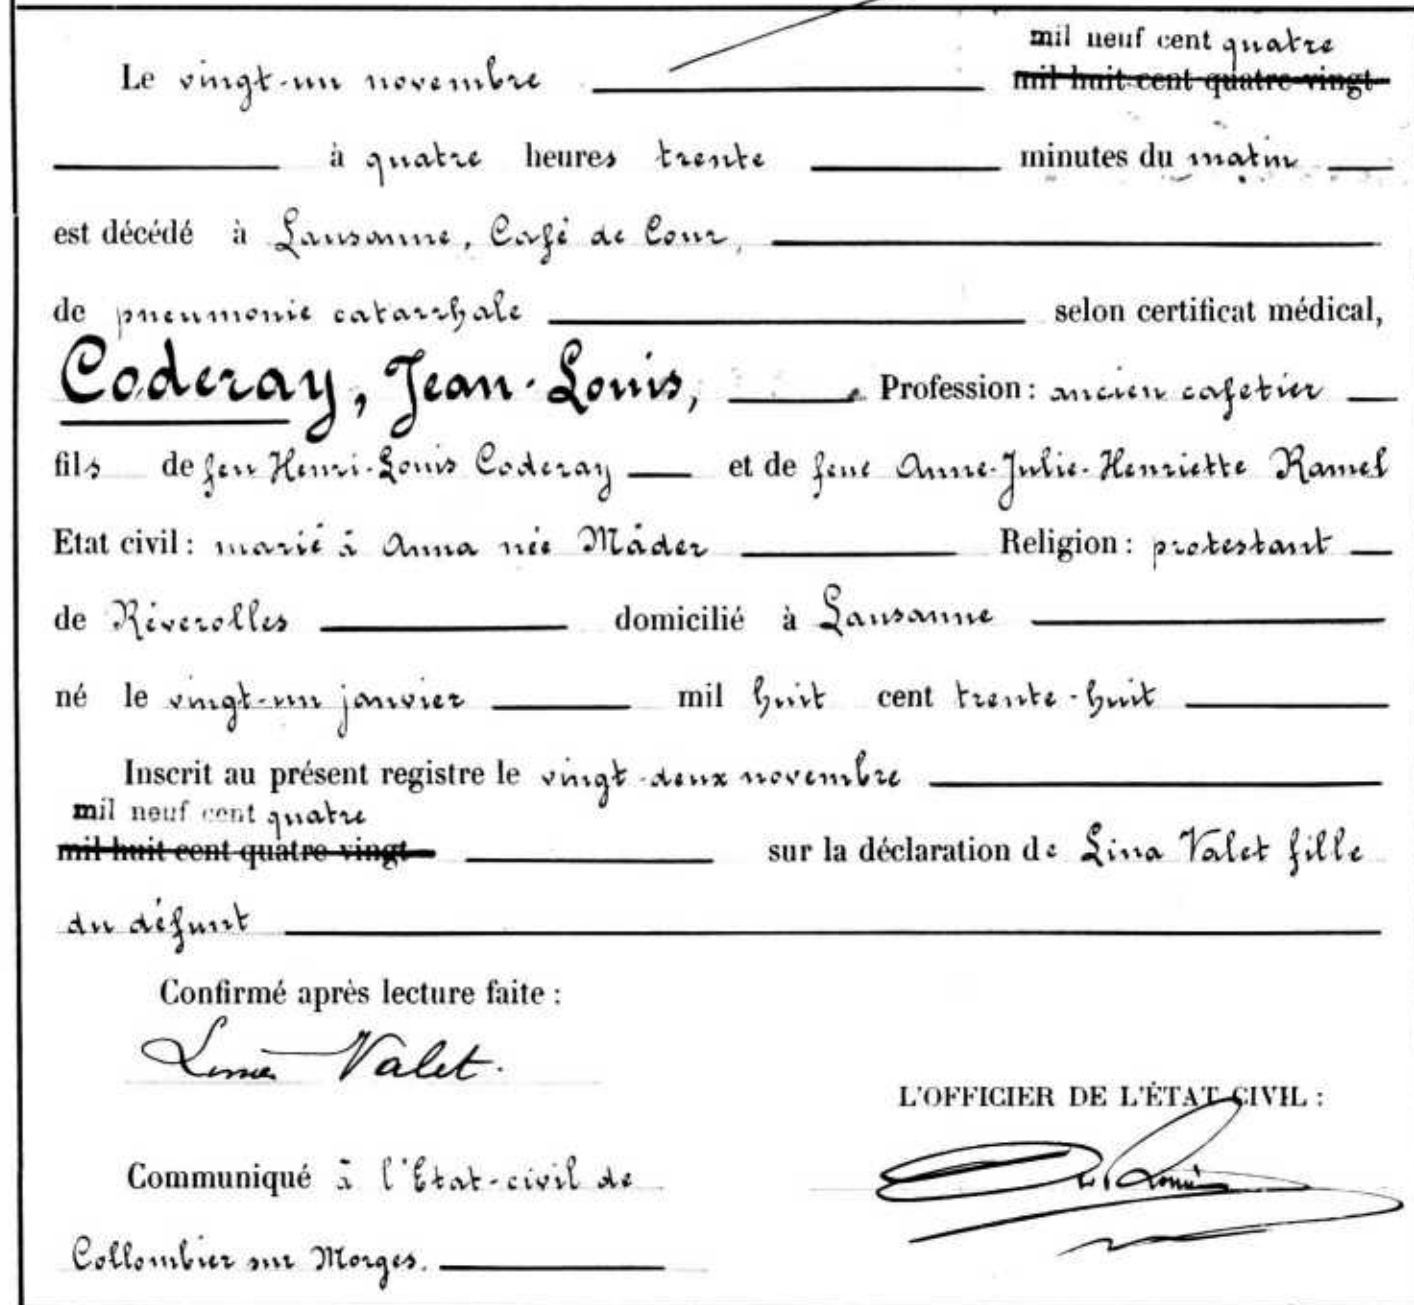 mil neuf cent quatre
Le vingt-un novembre mil huit cent quatre-vingt
à quatre heures trente minutes du matin
est décédé à Lausanne, Café de Cour,
de pneumonie catarrhale selon certificat médical,
Coderay, Jean-Louis, Profession : ancien cafetier
fils de feu Henri-Louis Coderay et de feue Anne-Julie-Henriette Ramel
Etat civil : marié à Anna née Mäder Religion : protestant
de Réverolles domicilié à Lausanne
né le vingt-un janvier mil huit cent trente-huit
Inscrit au présent registre le vingt-deux novembre
mil neuf cent quatre
mil huit cent quatre-vingt sur la déclaration de Lina Valet fille
du défunt
Confirmé après lecture faite :
Valet.
L'OFFICIER DE L'ÉTAT-CIVIL :
Communiqué à l'Etat-civil de
Collombier sur Morges.